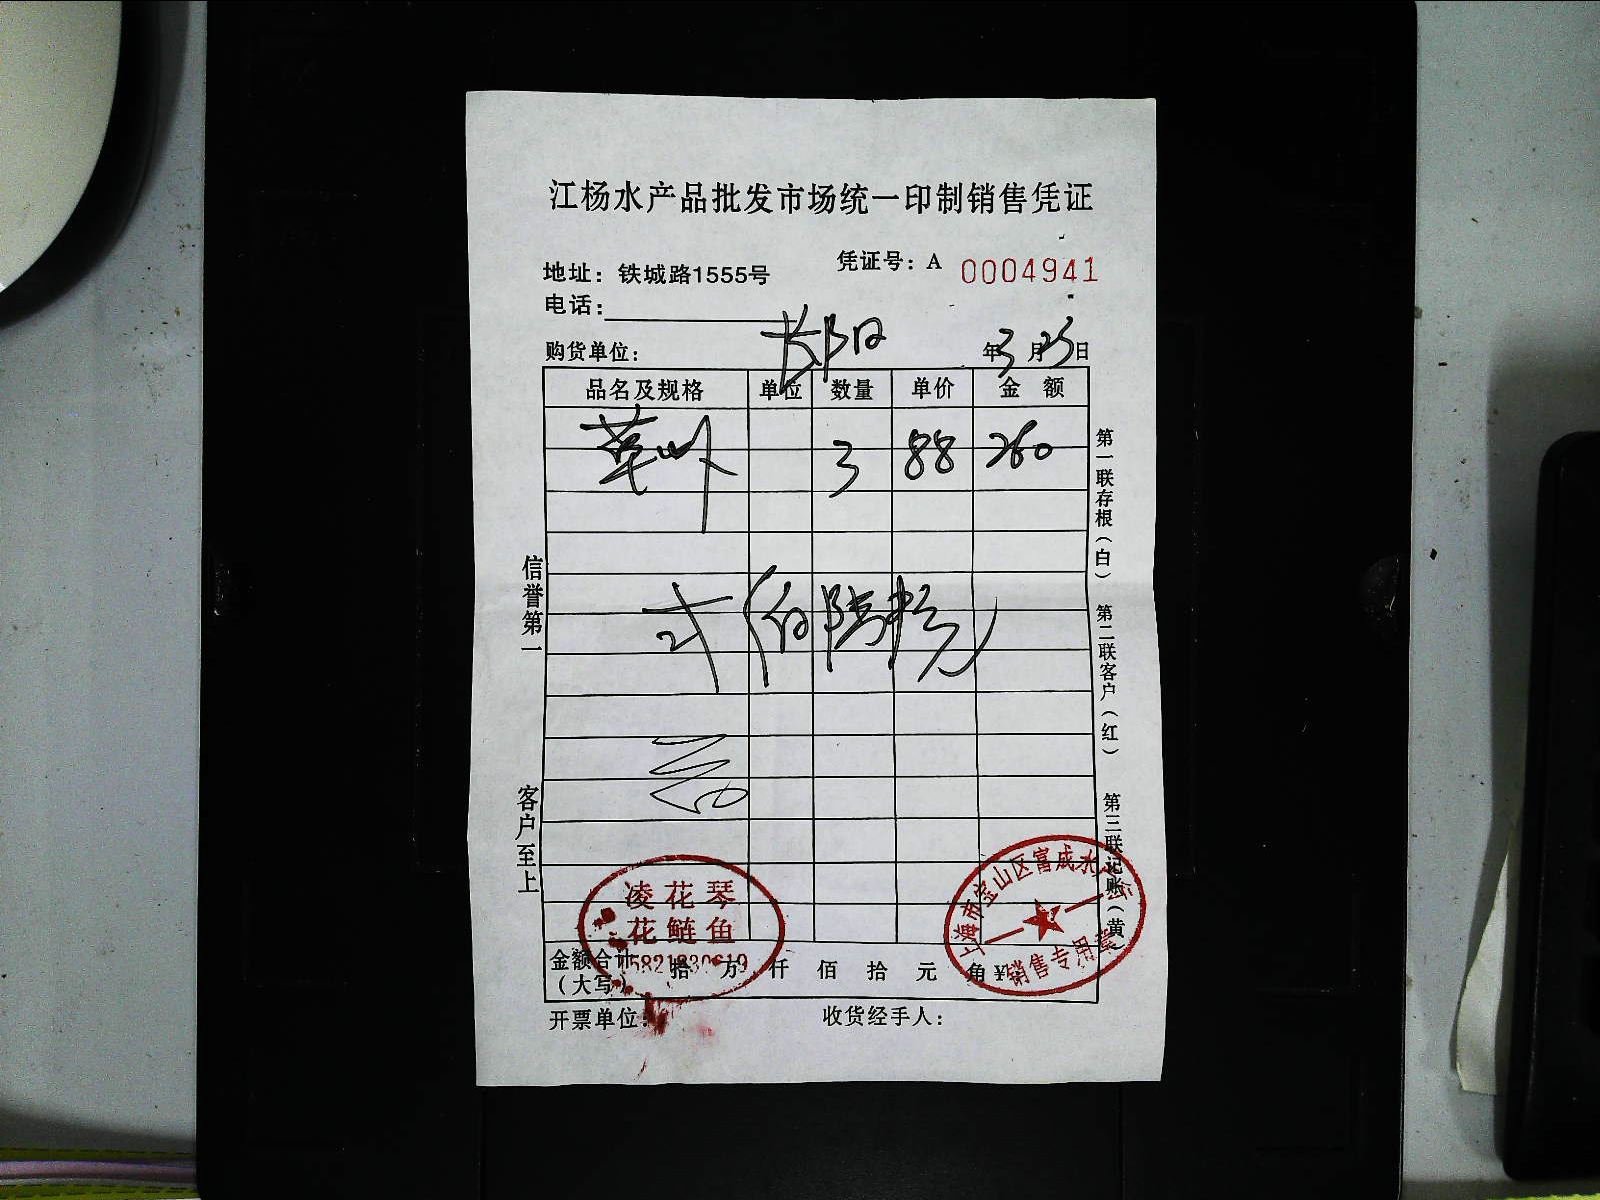 江杨水产品批发市场统一印制销售凭证
凭证号：A 0004941
地址：铁城路1555号
电话：
购货单位： 年3月25日
品名及规格 单位 数量 单价 金额
3 88 260
信誉第一
客户至上
第一联存根（白）
第二联客户（红）
第三联记账（黄
凌花琴
花鲢鱼
上海市宝山区富成水产
销售专用章
金额合计（大写） 拾 万 仟 佰 拾 元 角 ¥
开票单位： 收货经手人：